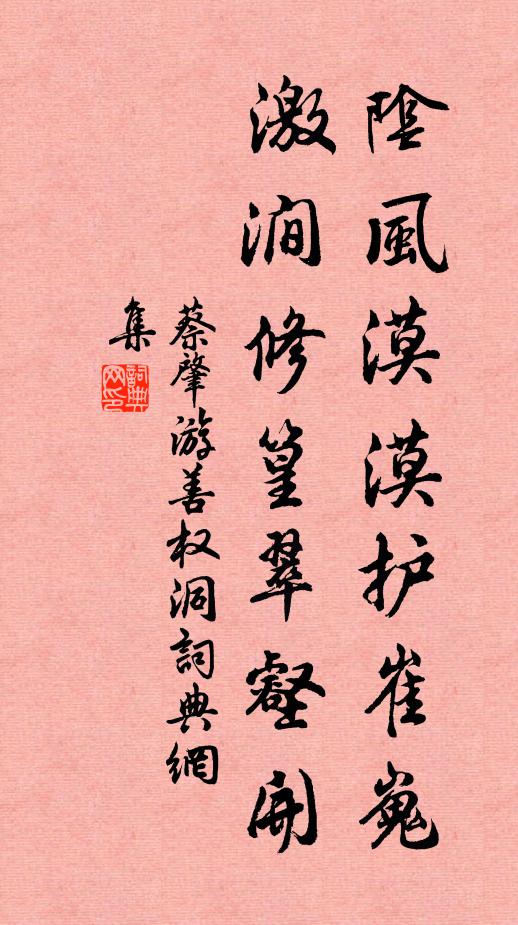 陰風漠漠护崔嵬
激澗修篁翠壑開
蔡肇游善权洞詞典網
集
詞典
网印